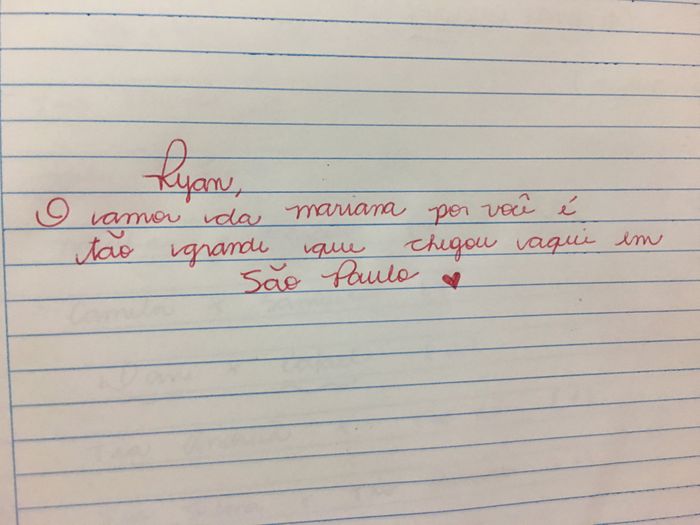 Ryan,
O amor da mariana por você é
tão grande que chegou aqui em
São Paulo ♥